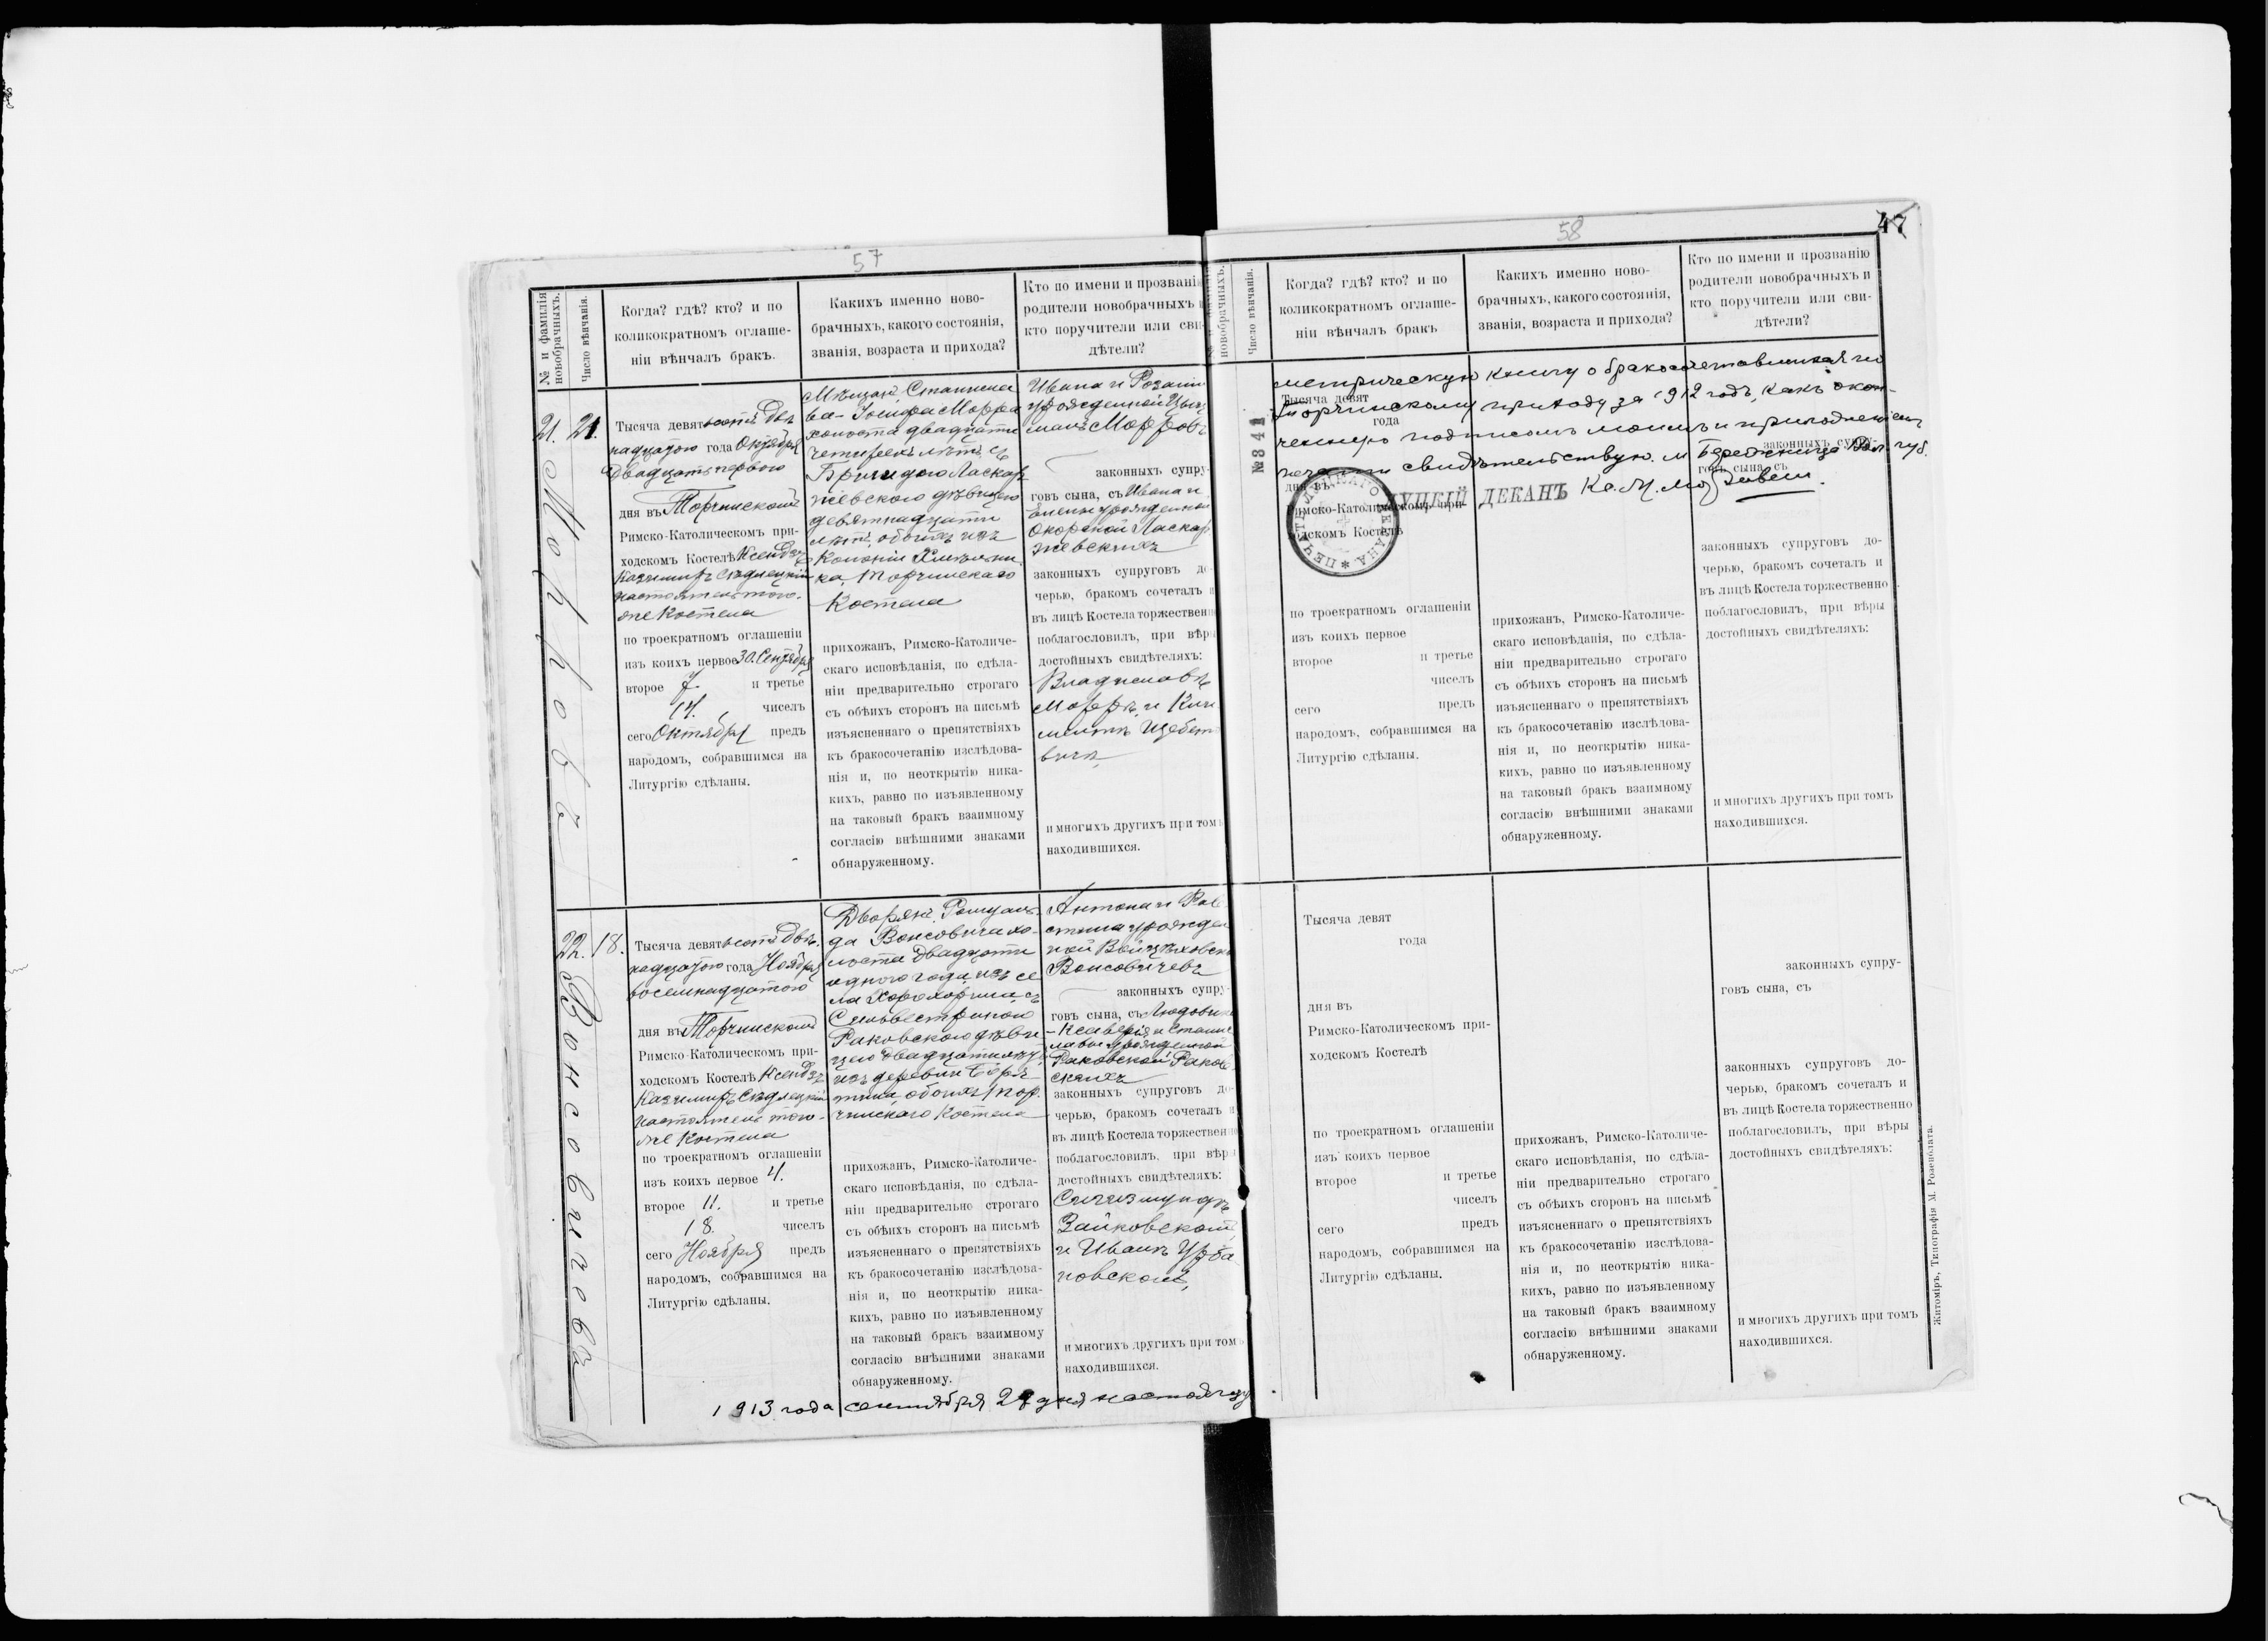 57
№ и фамилія новобрачныхъ.
Число вѣнчанія.
Когда? гдѣ? кто? и по
коликократномъ оглаше-
ніи вѣнчалъ бракъ.
Какихъ именно ново-
брачныхъ, какого состоянія,
званія, возраста и прихода?
Кто по имени и прозванію
родители новобрачныхъ и
кто поручители или сви-
дѣтели?
21.
Морровъ
21.
Тысяча девятьсотъ двѣ
надцатого года Октября
двадцать перваго
дня въ Торчинскомъ
Римско-Католическомъ при-
ходскомъ Костелѣ Ксендзъ
Казимиръ Сѣдлецкій
настоятель того-
же Костела
по троекратномъ оглашеніи
изъ коихъ первое 30. Сентября
второе 7. и третье
14. чиселъ
сего Октября предъ
народомъ, собравшимся на
Литургію сдѣланы.
Мѣщанъ, Станисла
ва-Іосифа Морра
холоста двадцати
четырехъ лѣтъ съ
Бригидою Ласкор
жевскою дѣвицею
девятнадцати
лѣтъ, обоихъ изъ
Колоніи
Торчинскаго
Костела
прихожанъ, Римско-Католиче-
скаго исповѣданія, по сдѣла-
ніи предварительно строгаго
съ обѣихъ сторонъ на письмѣ
изъясненнаго о препятствіяхъ
къ бракосочетанію изслѣдова-
нія и, по неоткрытію ника-
кихъ, равно по изъявленному
на таковый бракъ взаимному
согласію внѣшними знаками
обнаруженному.
Ивана и Розаліи
урожденной
Морровъ
законныхъ супру-
говъ сына, съ Ивана и
Елены урожденной
Ласкор
жевскихъ
законныхъ супруговъ до-
черью, бракомъ сочеталъ и
въ лицѣ Костела торжественно
поблагословилъ, при вѣры
достойныхъ свидѣтеляхъ:
Владиславѣ
Моррѣ и
вичѣ,
и многихъ другихъ при томъ
находившихся.
22.
Вонсовичевъ
18.
Тысяча девятьсотъ двѣ-
надцатого года Ноября
восемнадцатого
дня въ Торчинскомъ
Римско-Католическомъ при-
ходскомъ Костелѣ Ксендзъ
Казимиръ Сѣдлецкій
настоятель того-
же Костела
по троекратномъ оглашеніи
изъ коихъ первое 4.
второе 11. и третье
18. чиселъ
сего Ноября предъ
народомъ, собравшимся на
Литургію сдѣланы.
Дворянъ, Ромуаль
да Вонсовича хо-
лоста двадцати
одного года, изъ се
ла Хорохорина, съ
Сильвестриною
Раковскою дѣви
цею двадцати лѣтъ
изъ деревни
обоихъ Тор-
чинскаго Костела
прихожанъ, Римско-Католиче-
скаго исповѣданія, по сдѣла-
ніи предварительно строгаго
съ обѣихъ сторонъ на письмѣ
изъясненнаго о препятствіяхъ
къ бракосочетанію изслѣдова-
нія и, по неоткрытію ника-
кихъ, равно по изъявленному
на таковый бракъ взаимному
согласію внѣшними знаками
обнаруженному.
Антона и
урожден
ной Войцѣховской
Вонсовичевъ
законныхъ супру-
говъ сына, съ Людовика
-Ксаверія и Станис
лавы урожденной
Раковской Раков-
скихъ
законныхъ супруговъ до-
черью, бракомъ сочеталъ и
въ лицѣ Костела торжественно
поблагословилъ, при вѣры
достойныхъ свидѣтеляхъ:
Сигизмундѣ
Зайковскомъ
и Иванѣ Урба
новскомъ,
и многихъ другихъ при томъ
находившихся.
1913 года сентября 29 дня настоящую
58
47
№ и фамилія новобрачныхъ.
Число вѣнчанія.
Когда? гдѣ? кто? и по
коликократномъ оглаше-
ніи вѣнчалъ бракъ
Какихъ именно ново-
брачныхъ, какого состоянія,
званія, возраста и прихода?
Кто по имени и прозванію
родители новобрачныхъ и
кто поручители или сви-
дѣтели?
метрическую книгу о бракосочетавшихся по
Торчинскому приходу за 1912 годъ, какъ окон-
ченную подписомъ моимъ и приложеніемъ
печати свидѣтельствую. м. Бережница Вол. губ.
№ 342
ЛУЦКІЙ ДЕКАНЪ
ПЕЧАТЬ ЛУЦКАГО ДЕКАНА *
Тысяча девят
года
дня въ
Римско-Католическомъ при-
ходскомъ Костелѣ
по троекратномъ оглашеніи
изъ коихъ первое
второе и третье
чиселъ
сего предъ
народомъ, собравшимся на
Литургію сдѣланы.
прихожанъ, Римско-Католиче-
скаго исповѣданія, по сдѣла-
ніи предварительно строгаго
съ обѣихъ сторонъ на письмѣ
изъясненнаго о препятствіяхъ
къ бракосочетанію изслѣдова-
нія и, по неоткрытію ника-
кихъ, равно по изъявленному
на таковый бракъ взаимному
согласію внѣшними знаками
обнаруженному.
законныхъ супру-
говъ сына, съ
законныхъ супруговъ до-
черью, бракомъ сочеталъ и
въ лицѣ Костела торжественно
поблагословилъ, при вѣры
достойныхъ свидѣтеляхъ:
и многихъ другихъ при томъ
находившихся.
Тысяча девят
года
дня въ
Римско-Католическомъ при-
ходскомъ Костелѣ
по троекратномъ оглашеніи
изъ коихъ первое
второе и третье
чиселъ
сего предъ
народомъ, собравшимся на
Литургію сдѣланы.
прихожанъ, Римско-Католиче-
скаго исповѣданія, по сдѣла-
ніи предварительно строгаго
съ обѣихъ сторонъ на письмѣ
изъясненнаго о препятствіяхъ
къ бракосочетанію изслѣдова-
нія и, по неоткрытію ника-
кихъ, равно по изъявленному
на таковый бракъ взаимному
согласію внѣшними знаками
обнаруженному.
законныхъ супру-
говъ сына, съ
законныхъ супруговъ до-
черью, бракомъ сочеталъ и
въ лицѣ Костела торжественно
поблагословилъ, при вѣры
достойныхъ свидѣтеляхъ:
и многихъ другихъ при томъ
находившихся.
Житоміръ, Типографія М. Розенблата.